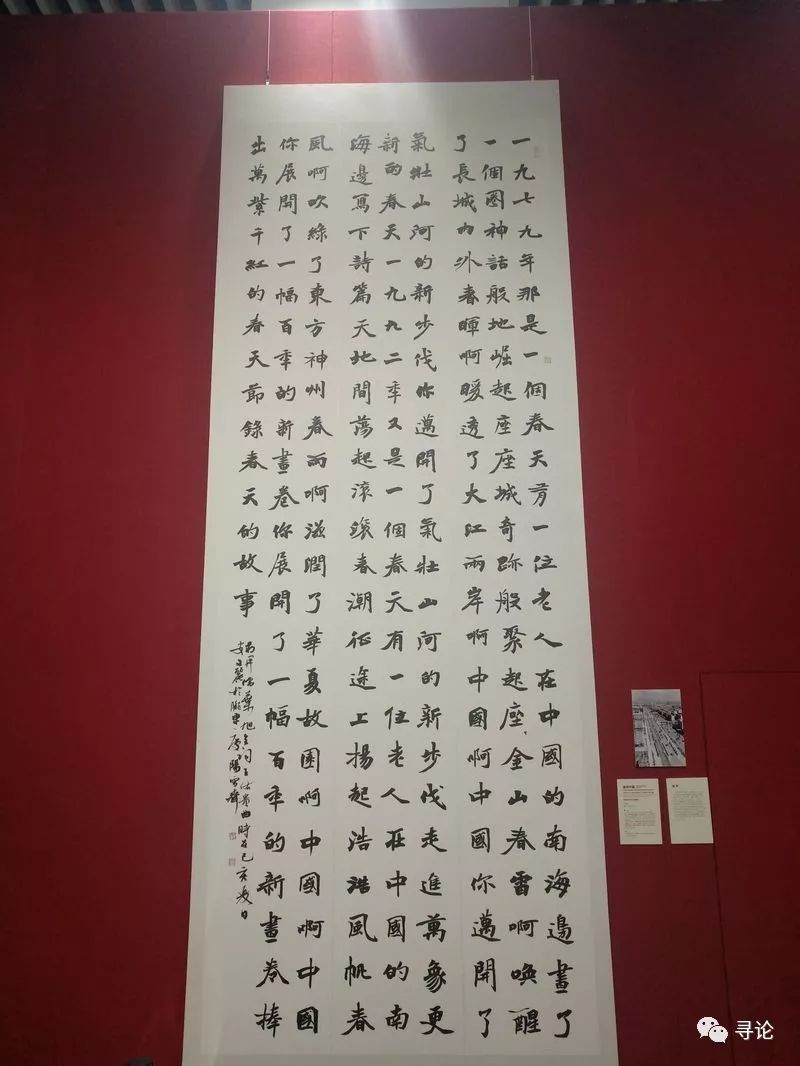 一九七九年那是一個春天有一位老人在中國的南海邊畫了
一個圈神話般地崛起座座城奇跡般聚起座、金山春雷啊喚醒
了長城內外春暉啊暖透了大江兩岸啊中國啊中國你邁開了
氣壯山河的新步伐你邁開了氣壯山河的新步伐走進萬象更
新的春天一九九二年又是一個春天有一位老人在中國的南
海邊寫下詩篇天地間蕩起滾滾春潮征途上揚起浩浩風帆春
風啊吹綠了東方神州春雨啊滋潤了華夏故園啊中國啊中國
你展開了一幅百年的新畫卷你展開了一幅百年的新畫卷捧
出萬紫千紅的春天節錄春天的故事
蔣開儒葉旭全詞王佑貴曲時在己亥夏日
寻论